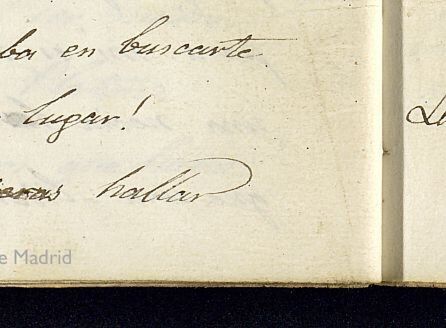 ba en buscarte
lugar!
hallar
e Madrid